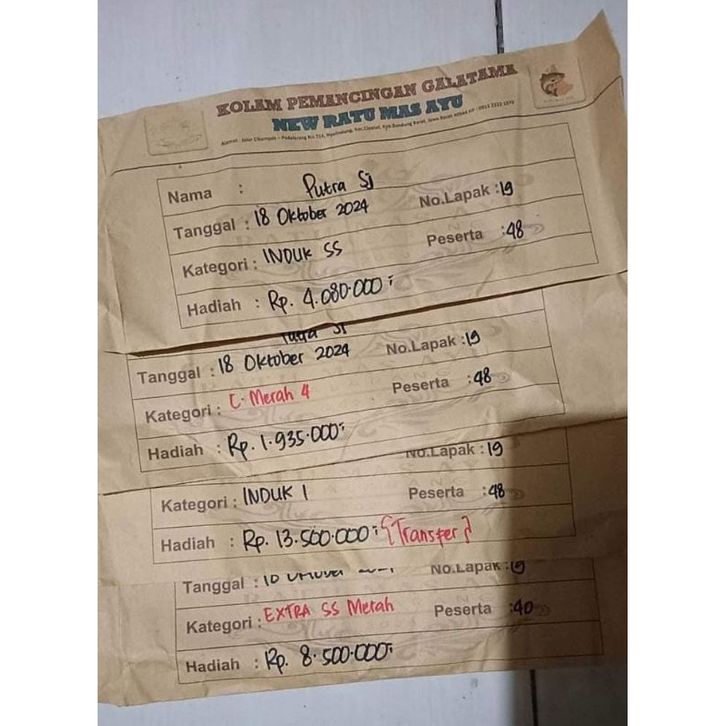 KOLAM PEMANCINGAN GALATAMA
NEW RATU MAS AYU
Nama : Putra SJ
Tanggal : 18 Oktober 2024 No.Lapak : 19
Kategori : INDUK SS Peserta : 48
Hadiah : Rp. 4.080.000
Tanggal : 18 Oktober 2024 No.Lapak : 19
Kategori : C. Merah 4 Peserta : 48
Hadiah : Rp. 1.935.000
No.Lapak : 19
Kategori : INDUK 1 Peserta : 48
Hadiah : Rp. 13.500.000 {Transfer}
Tanggal : No.Lapak : 19
Kategori : EXTRA SS Merah Peserta : 40
Hadiah : Rp. 8.500.000